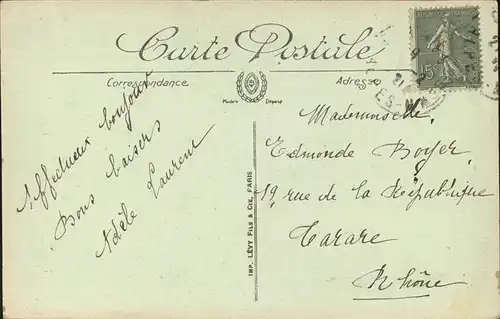 Carte Postale
Correspondance
Adresse
Affectueux bonjour
Bons baisers
Adèle Laurent
IMP. LÉVY FILS & CIE, PARIS
Mademoiselle,
Edmonde Boyer
19 rue de la République
Tarare
Rhône
15